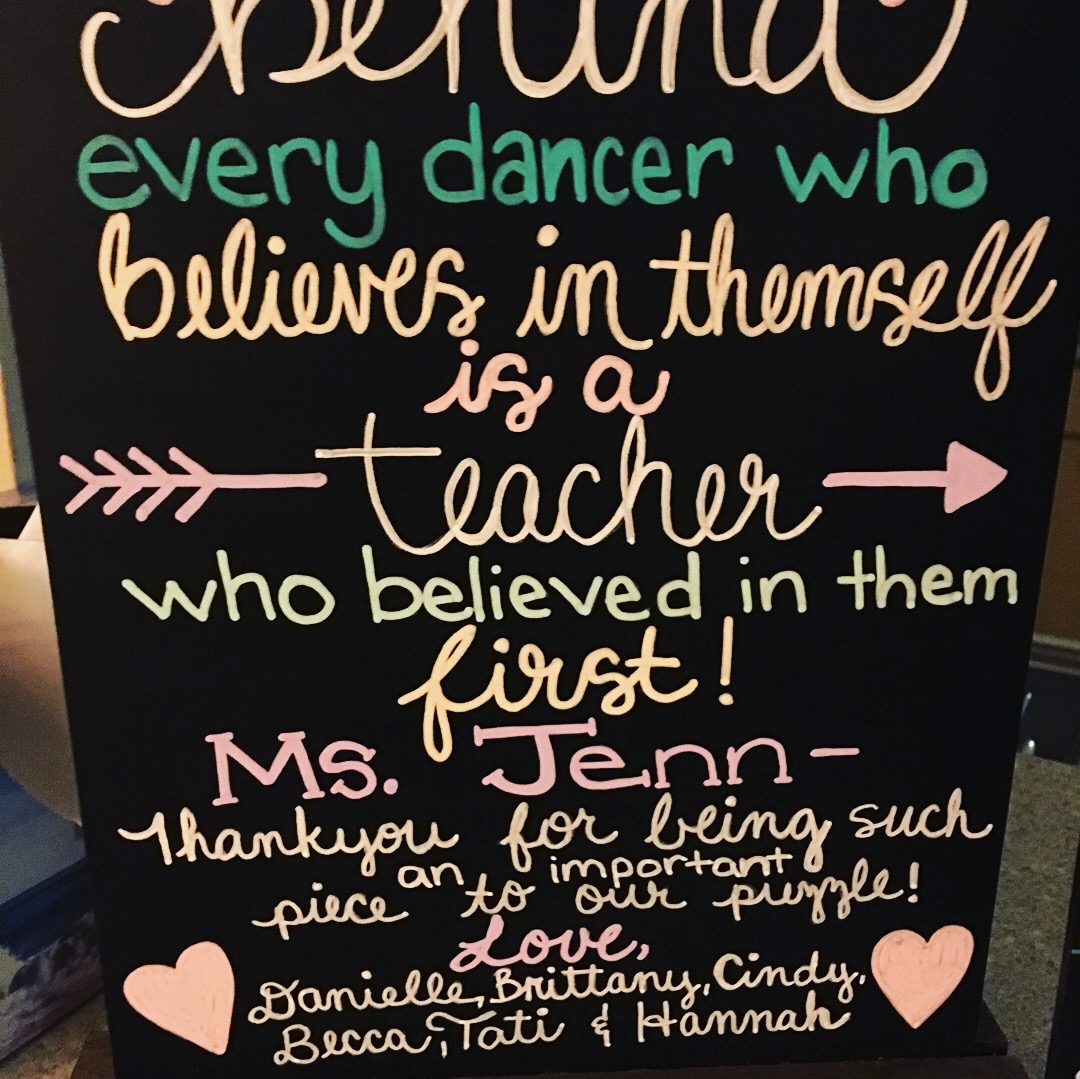 Behind
every dancer who
believes in themself
is a
teacher
who believed in them
first!
Ms. Jenn-
Thankyou for being such
an important
piece to our puzzle!
Love,
Danielle, Brittany, Cindy,
Becca, Tati & Hannah